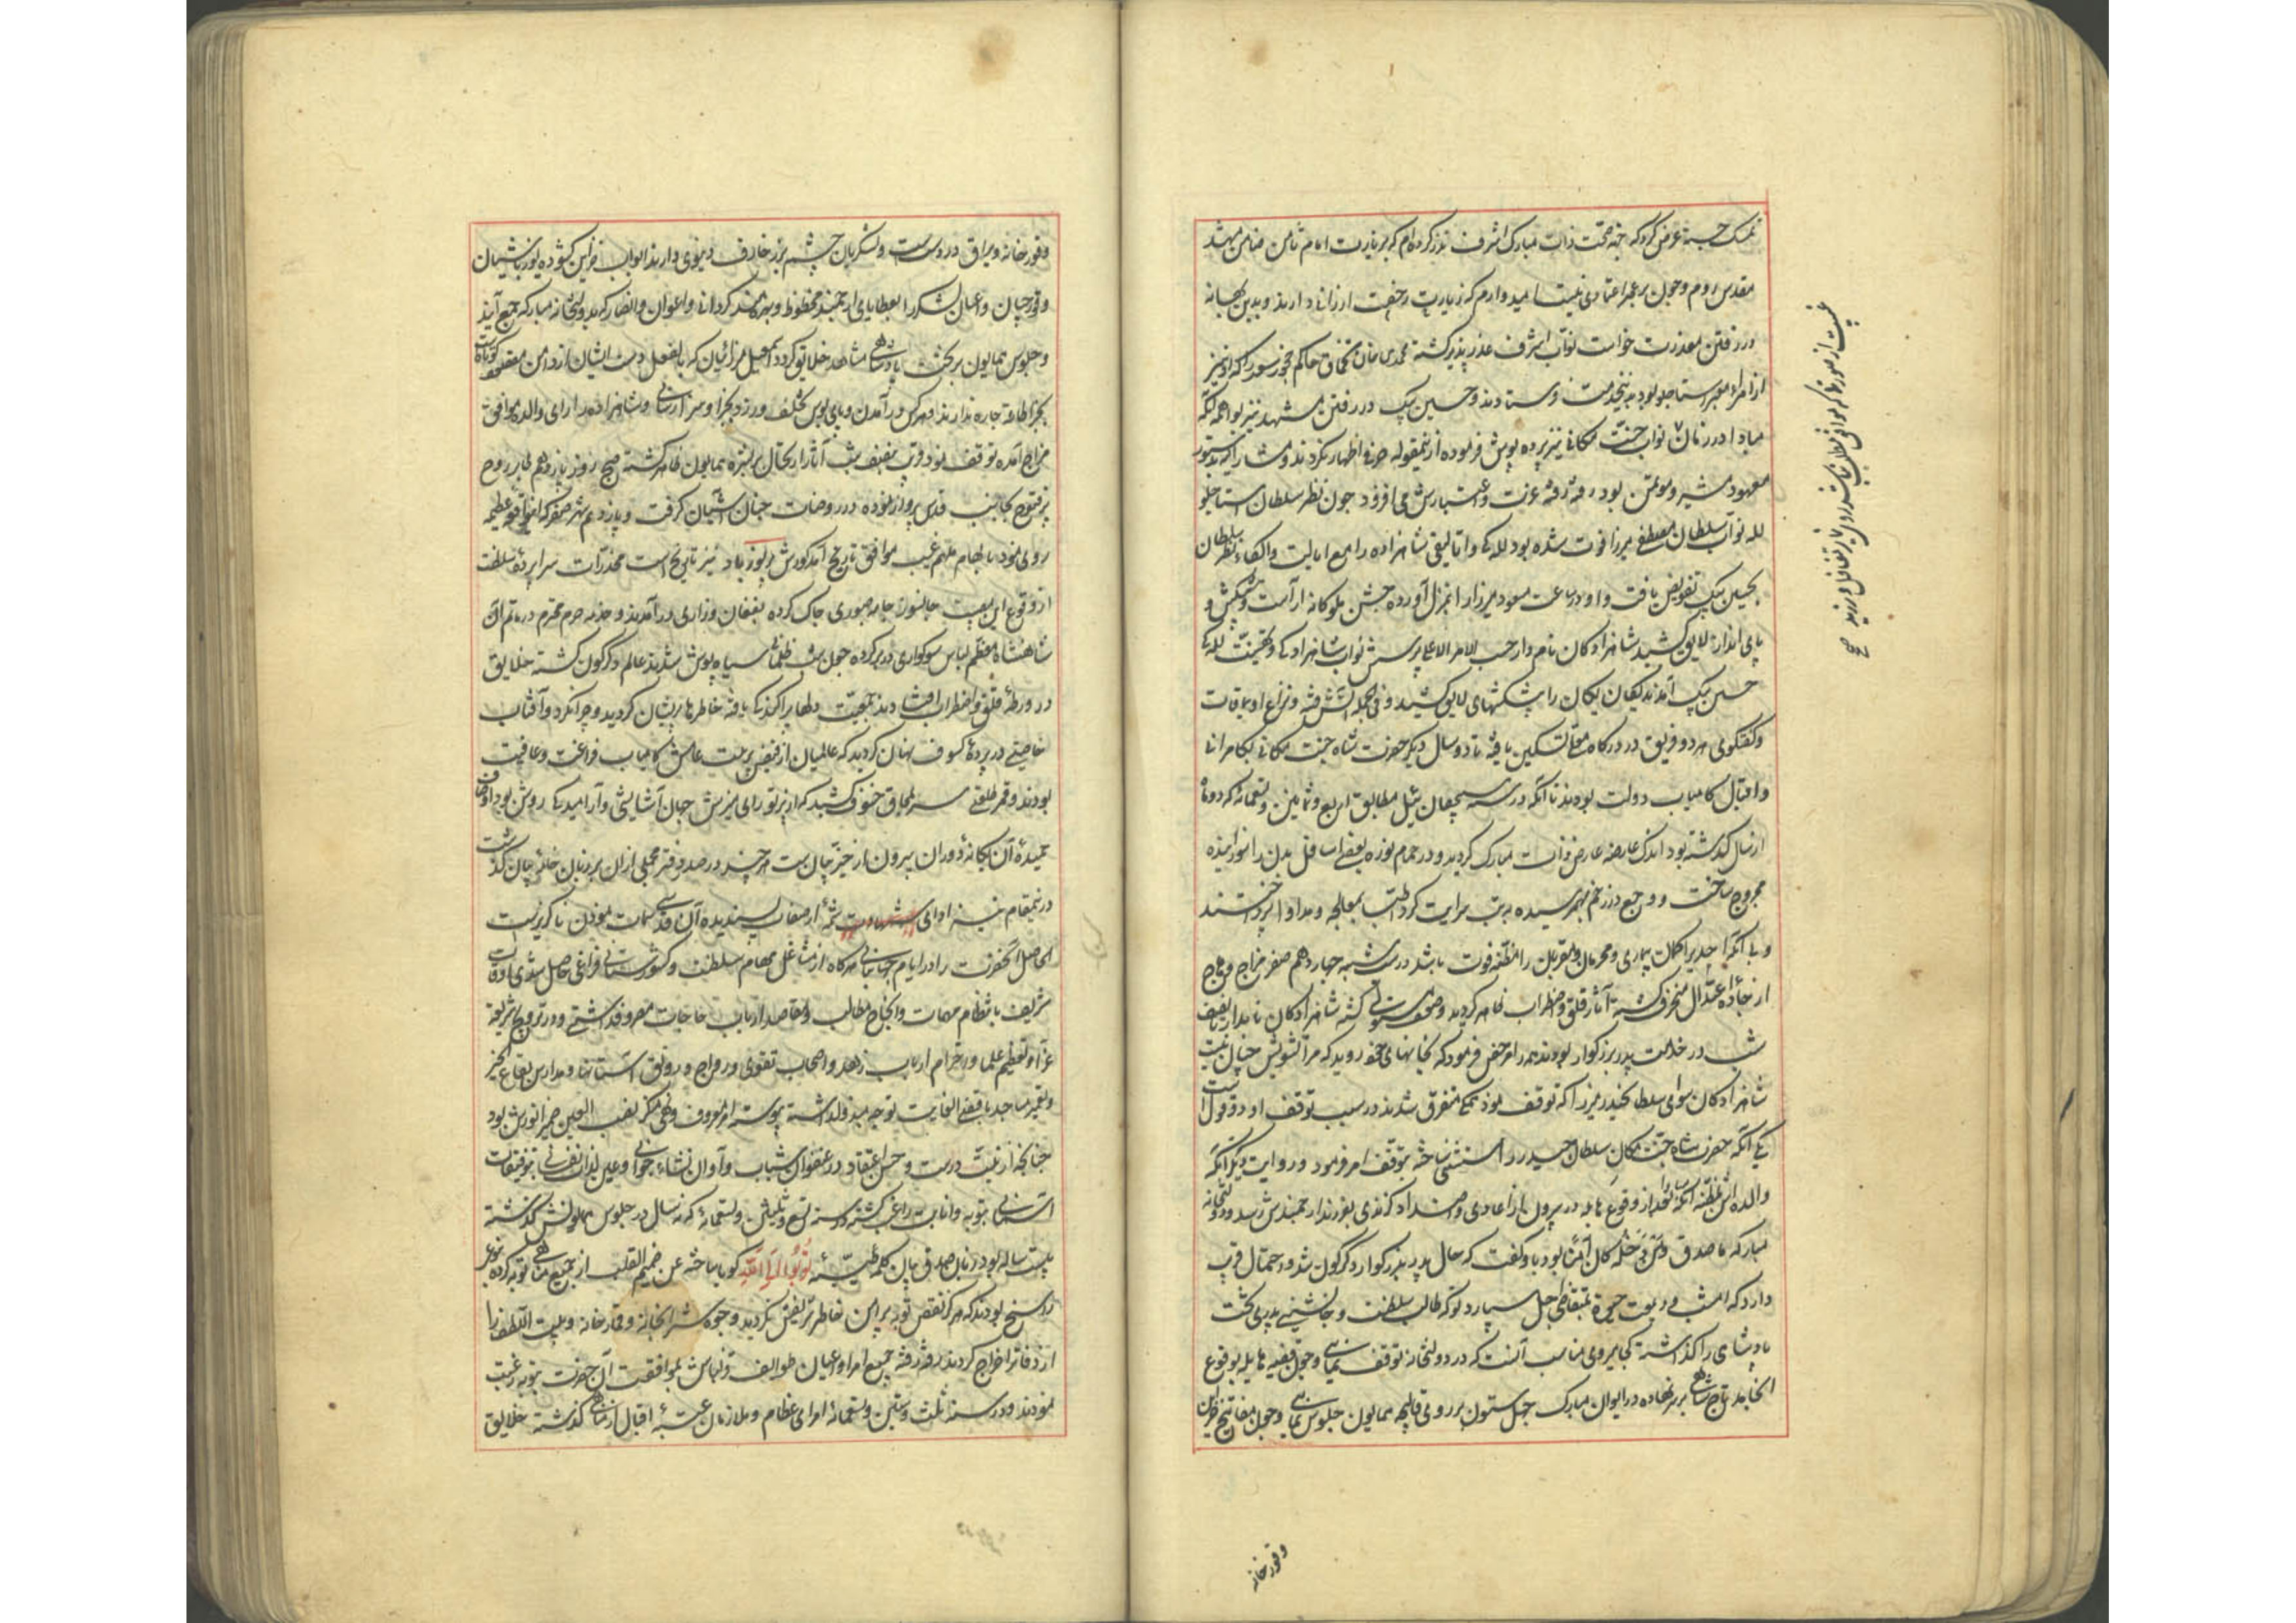 تمسک جسته عرض کرد که جهة صحت ذات مبارک اشرف نذر کرده‌ام که بزیارت امام ثامن ضامن بمشهد
مقدس روم و چون بر عمر اعتمادی نیست امیدوارم که زیارت رخصت ارزانی دارند و بدین بهانه
در رفتن معذرت خواست نواب اشرف عذر پذیر گشته محمدی خان تخماق حاکم چخور سعد را که او نیز
از امراء معتبر استاجلو بود بدینخدمت فرستادند و حسین بیک در رفتن مشهد نیز بواهمه آنکه
مبادا در زمان نواب جنت مکانی نیز پرده پوش فرموده ازینمقوله حرفی اظهار نکردند و مشارالیه بدستور
معهود مشیر و موتمن بود رفته رفته عزت و اعتبارش می افزود چون نظر سلطان استاجلو
لله نواب سلطان مصطفی میرزا فوت شده بود للگی و اتالیقی شاهزاده را مع ایالت و الکاء نظر سلطان
بحسین بیک تفویض یافت و او در ساعت مسعود میرزا را بمنزل آورده جشن ملوکانه آراست و پیشکش و
پای انداز لایق کشید شاهزادکان نامدار حسب الامر الاعلی بپرسش نواب شاهزادکی و تهنیت للگی
حسین بیک آمدند یکان یکان را پیشکشهای لایق کشید و فی الجمله آتش فتنه و نزاع اویماقات
و گفتگوی هر دو فریق در درگاه معلی تسکین یافته تا دو سال دیگر حضرت شاه جنت مکانی بکامرانی
و اقبال کامیاب دولت بودند تا آنکه در سنه سیچقان ئیل مطابق اربع و ثمانین و تسعمائه که دو ماه
از سال گذشته بود اندک عارضه عارض ذات مبارک گردید و در حمام نوره بعضی اسافل بدن را سوزانیده
مجروح ساخت و وجع در زخم بهم رسیده به تب سرایت کرد اطبا بمعالجه و مداوا پرداختند
و با آنکه احدی را کمان بیماری و محرمان و مقربان را مظنه فوت باشد در شب سه شنبه چهاردهم صفر مزاج وهاج
از جاده اعتدال منحرف گشته آثار قلق و اضطراب ظاهر گردید و ضعف مستولی گشته شاهزادکان نامدار تا نصف
شب در خدمت پدر بزرگوار بودند همه را مرخص فرمود که بخانهای خود روید که مرا تشویش چنان نیست
شاهزادکان سوای سلطان حیدر میرزا که توقف نمود همگی متفرق شدند در سبب توقف او دو قول است
یکی آنکه حضرت شاه جنت مکان سلطان حیدر را مستثنی ساخته بتوقف امر فرمود و روایت دیگر آنکه
والده اش بمظنه آنکه مبادا بعد از وقوع هایله در بیرون از اعادی و اضداد گزندی بفرزند ارجمندش رسد و دولتخانه
مبارکه ما صدق وَمَن دَخَلَهُ کانَ آمِناً بود باو گفت که حال پدر بزرگوار دگرگون شد و احتمال قریب
دارد که امشب ودیعت حیوة بمتقاضی اجل سپارد تو که طالب سلطنت و جانشینی پدری تخت
پادشاهی را گذاشته کجا میروی مناسب آنست که در دولتخانه توقف نمایی و چون قضیه هایله بوقوع
انجامد تاج شاهی بر سر نهاده در ایوان مبارک چهل ستون بر روی قالیچه همایون جلوس نمایی و چون مفاتیح خزاین
وقورخانه
وقورخانه و یراق در دوست و لشکریان چشم بر زخارف دنیوی دارند ابواب خزاین گشوده یوزباشیان
وقورچیان و اعیان لشکر را بعطایای ارجمند محظوظ و بهره‌مند گردانی و اعوان و انصار که بدولتخانه مبارکه جمع آیند
و جلوس همایون بر تخت پادشاهی مشاهده خلایق گردد اسمعیل میرزائیان که بالفعل دست ایشان از دامن مقصود کوتاه است
بجز اطاعت چاره ندارند و هر کس در آمدن و پای بوس تخلف ورزد بجزا و سزا رسانی و شاهزاده را رای والده موافق
مزاج آمده توقف نمود قریب بنصف شب آثار ارتحال بر بشره همایون ظاهر گشته صبح روز پانزدهم طایر روح
پرفتوح بجانب قدس پرواز نموده در روضات جنان آشیان گرفت و پانزدهم شهر صفر که این واقعه عظیمه
روی نمود بالهام ملهم غیب موافق تاریخ آمد گورش پر نور باد نیز تاریخ است مخدرات سراپرده سلطنت
از وقوع این مصیبت جانسوز جامه صبوری چاک کرده بفغان و زاری درآمدند و خدمه حرم محترم در ماتم آن
شاهنشاه معظم لباس سوگواری در بر کرده چون شب ظلمانی سیاه پوش شدند عالم دگرگون گشته خلایق
در ورطه قلق و اضطراب افتادند جمعیت دلها پراکندگی یافته خاطرها پریشان گردید و چرا نگردد آفتاب
خاصیتی در پرده کسوف نهان گردید که عالمیان از فیض تربیت عامش کامیاب فراغت و عافیت
بودند و قمر طلعتی سر بمحاق خسوف کشید که از پرتو رای منیرش جهان آسایش و آرامیدگی روشن بود اوصاف
حمیده آن یگانه دوران بیرون از حیز بیان است هر چند در صد دفتر مجملی ازان بر زبان خامه بیان گذشت
درینمقام نیز ادای شهادت شمه از صفات پسندیده آن قدسی سمات نمودن ناگزیر است
الحاصل آنحضرت را در ایام جهانبانی هرگاه از مشاغل مهام سلطنت و کشورستانی فراغی حاصل شدی اوقات
شریف بانتظام مهمات و انجاح مطالب و مقاصد ارباب حاجات مصروف داشتی و در ترویج شریعت
غرا و تعظیم علما و احترام ارباب زهد و اصحاب تقوی و رواج و رونق آستانها و مدارس بقاع الخیر
و تعمیر مساجد باقصی الغایت توجه مبذول داشته پیوسته امر معروف و نهی منکر نصب العین ضمیر انورش بود
چنانچه از نیت درست و حسن اعتقاد در عنفوان شباب و آوان نشاء جوانی و عین لذات نفسانی بتوفیقات
آسمانی بتوبه و انابت راغب گشته در سنه تسع و ثلثین و تسعمائه که نه سال در جلوس همایونش گذشته
بیست ساله بود زبان صدق بیان بکلمه طیبه تُوبُوا اِلَی اللّهِ گویا ساخته عن صمیم القلب از جمیع مناهی توبه کرده بنوعی
راسخ بودند که هرگز نقض توبه پیرامن خاطر شریفش نگردید و وجوه شرابخانه و قمارخانه و بیت اللطف را
از دفاتر اخراج کردند رفته رفته جمیع امرا و اعیان طوایف قزلباش بموافقت آن حضرت بتوبه رغبت
نمودند و در سنه ثلث و ستین و تسعمائه امرای عظام و ملازمان عتبه اقبال از مناهی گذشته خلایق